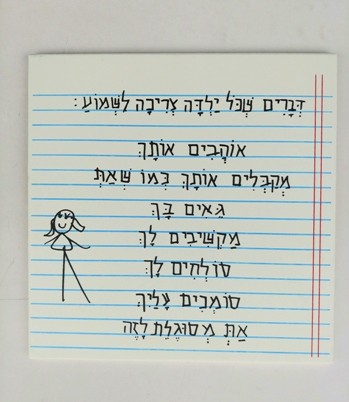 דְּבָרִים שֶׁכֹּל יַלְדָּה צְרִיכָה לִשְׁמוֹעַ:
אוֹהֲבִים אוֹתָךְ
מְקַבְּלִים אוֹתָךְ כְּמוֹ שֶׁאַתְּ
גֵּאִים בָּךְ
מַקְשִׁיבִים לָךְ
סוֹלְחִים לָךְ
סוֹמְכִים עָלַיִךְ
אַתְּ מְסוּגֶּלֶת לָזֶה